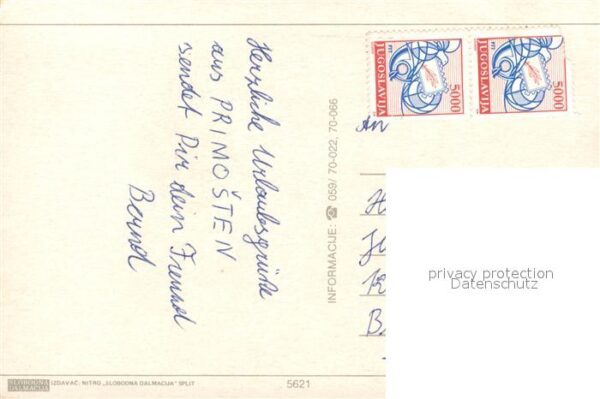 Herzliche Urlaubsgrüße
aus PRIMOŠTEN
sendet Dir dein Freund
Bernd
INFORMACIJE: ☎ 059/ 70-022, 70-066
PTT
JUGOSLAVIJA
5000
PTT
JUGOSLAVIJA
5000
An
H
J
K
B
privacy protection
Datenschutz
SLOBODNA
DALMACIJA
IZDAVAČ: NITRO „SLOBODNA DALMACIJA" SPLIT
5621